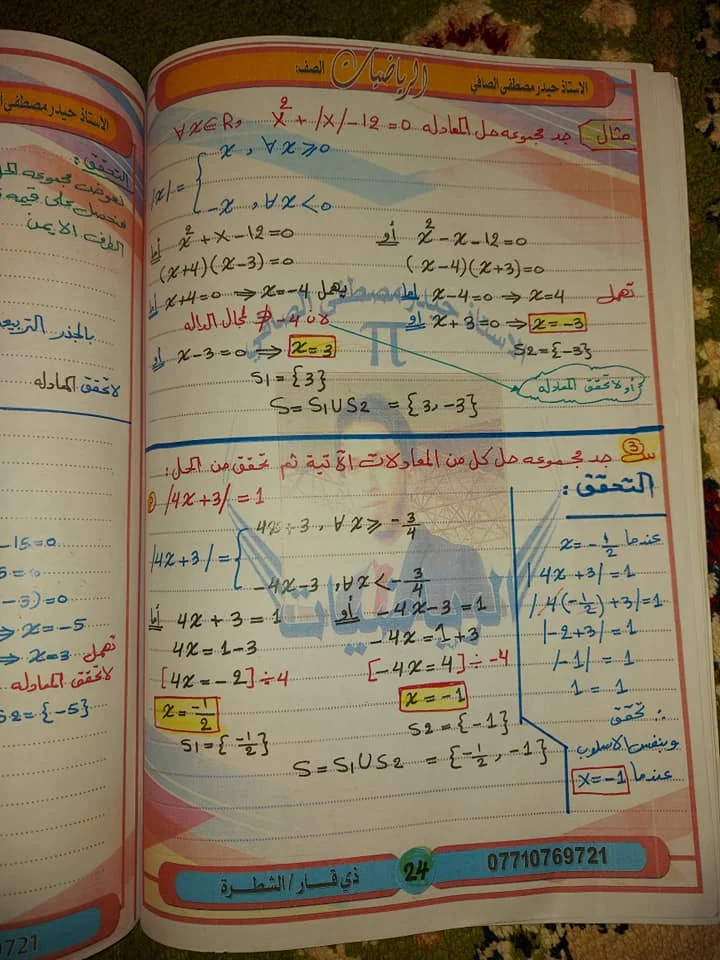 الاستاذ حيدر مصطفى الصافي الرياضيات الصف:
مثال - جد مجموعه حل المعادله x² + |x| - 12 = 0 , ∀x∈R
|x| = { x , ∀x≥0
-x , ∀x<0
اما x² + x - 12 = 0
(x+4)(x-3) = 0
اما x+4=0 ⇒ x=-4 يهمل
لان -4 ∉ لمجال الداله
او x-3=0 ⇒ x=3
S1 = {3}
أو x² - x - 12 = 0
(x-4)(x+3) = 0
اما x-4=0 ⇒ x=4 تهمل
او x+3=0 ⇒ x=-3
S2 = {-3}
أو لا تحقق المعادله
S = S1 U S2 = {3, -3}
س3 جد مجموعه حل كل من المعادلات الآتية ثم تحقق من الحل:
|4x+3| = 1
|4x+3| = { 4x+3 , ∀x ≥ -3/4
-4x-3 , ∀x < -3/4
اما 4x + 3 = 1
4x = 1-3
[4x = -2] ÷ 4
x = -1/2
S1 = {-1/2}
أو -4x-3 = 1
-4x = 1+3
[-4x = 4] ÷ -4
x = -1
S2 = {-1}
S = S1 U S2 = {-1/2, -1}
التحقق:
عندما x = -1/2
|4x+3| = 1
|4(-1/2)+3| = 1
|-2+3| = 1
|-1| = 1
1 = 1
∴ تحقق
وبنفس الاسلوب
عندما x=-1
ذي قار / الشطرة 24 07710769721
الاستاذ حيدر مصطفى
التحقق:
نعوض مجموعه
فنحصل على قيمه
الطرف الايمن
بالجذر
لا تحقق المعادله
-15=0
-3)=0
⇒ x=-5
⇒ x=3 تهمل
لا تحقق المعادله
S2={-5}
9721